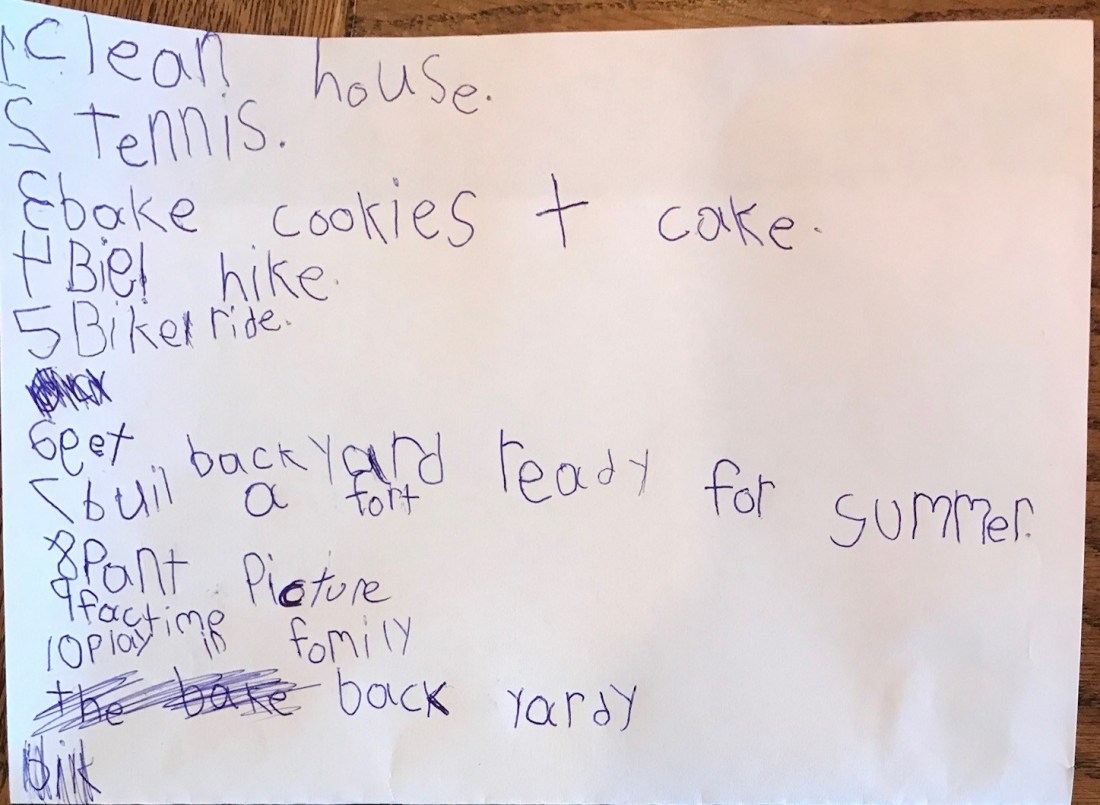 1 Clean house.
2 Tennis.
3 bake cookies + cake.
4 Biel hike.
5 Biker ride.
6 get backyard ready for summer.
7 buil a fort
8 Pant Picture
9 factime fomily
10 Play in
the bake back yardy